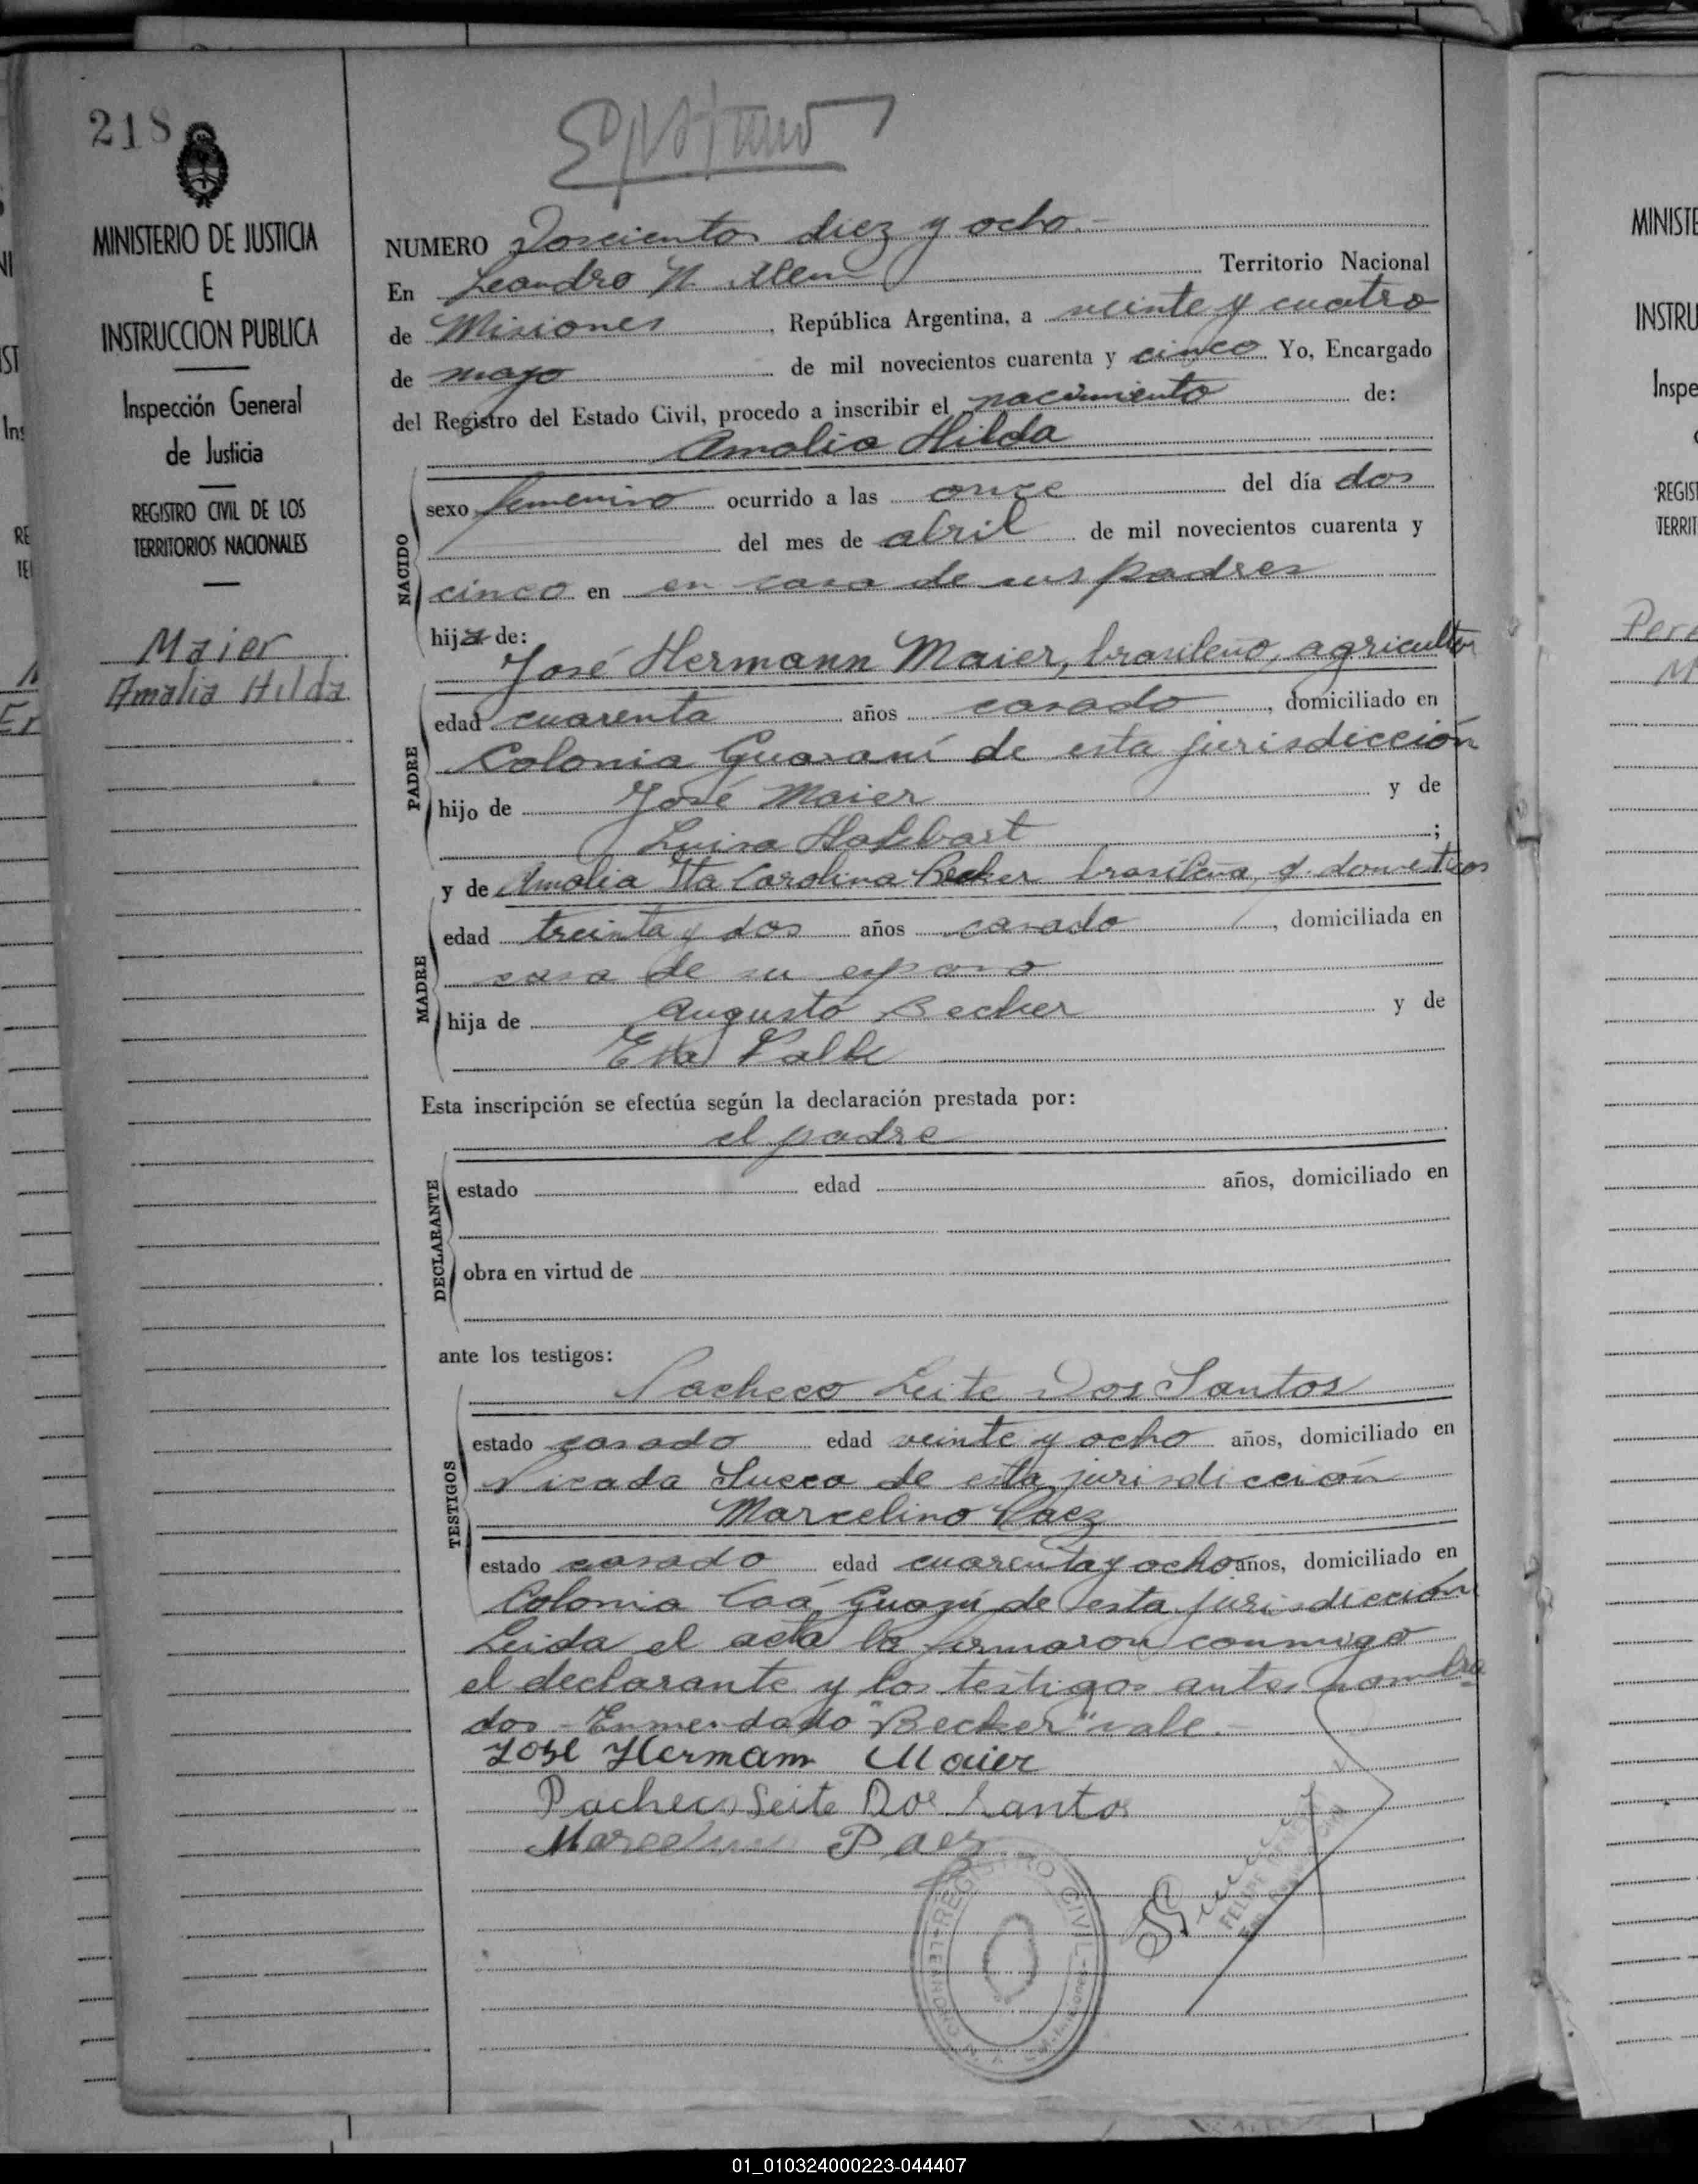 218
MINISTERIO DE JUSTICIA
E
INSTRUCCION PUBLICA
Inspección General
de Justicia
REGISTRO CIVIL DE LOS
TERRITORIOS NACIONALES
Maier
Amalia Hilda
NUMERO Doscientos diez y ocho.-
En Leandro N. Alem Territorio Nacional
de Misiones, República Argentina, a veinte y cuatro
de mayo de mil novecientos cuarenta y cinco Yo, Encargado
del Registro del Estado Civil, procedo a inscribir el nacimiento de:
Amalia Hilda
NACIDO
sexo femenino ocurrido a las once del día dos
del mes de abril de mil novecientos cuarenta y
cinco en en casa de sus padres
hija de:
José Hermann Maier, brasileño, agricultor
PADRE
edad cuarenta años casado, domiciliado en
Colonia Guaraní de esta jurisdicción
hijo de José Maier y de
Luisa ;
y de Amalia Carolina Becker brasileña, q. domesticos
MADRE
edad treinta y dos años casada, domiciliada en
casa de su esposo
hija de Augusto Becker y de
Esta inscripción se efectúa según la declaración prestada por:
el padre
DECLARANTE
estado edad años, domiciliado en
obra en virtud de
ante los testigos:
Pacheco Leite Dos Santos
TESTIGOS
estado casado edad veinte y ocho años, domiciliado en
Picada Sueca de esta jurisdicción
Marcelino Paez
estado casado edad cuarenta y ocho años, domiciliado en
Colonia Caá Guazú de esta jurisdicción
Leida el acta la firmaron conmigo
el declarante y los testigos antes nombra
dos - Enmendado "Becker" vale.-
José Hermann Maier
Pacheco Leite Dos Santos
Marcelino Paez
REGISTRO CIVIL
MINISTE
INSTRU
Inspe
REGIST
TERRIT
01_010324000223-044407